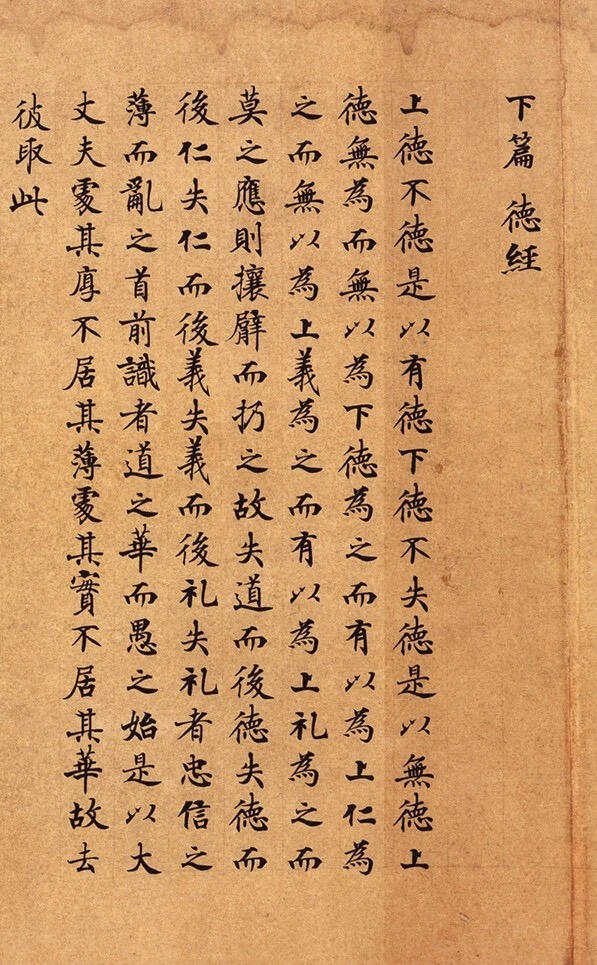 下篇 徳経
上徳不徳是以有徳下徳不失徳是以無徳上
徳無為而無以為下徳為之而有以為上仁為
之而無以為上義為之而有以為上礼為之而
莫之應則攘臂而扔之故失道而後徳失徳而
後仁失仁而後義失義而後礼失礼者忠信之
薄而亂之首前識者道之華而愚之始是以大
丈夫處其厚不居其薄處其實不居其華故去
彼取此